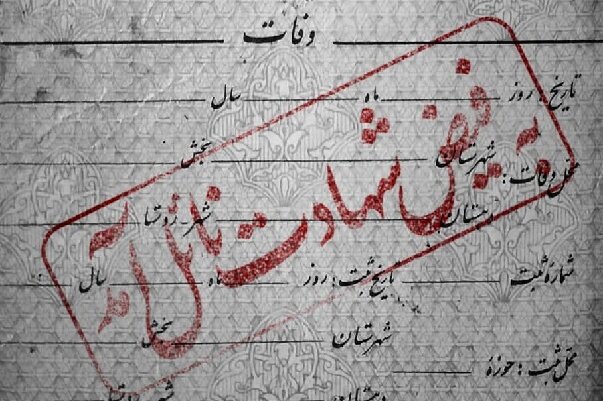 وفات
تاریخ: روز ماه سال
محل وفات: شهرستان بخش
دهستان شهر - روستا
شماره ثبت تاریخ ثبت: روز ماه سال
محل ثبت: حوزه شهرستان بخش
دهستان شهر روستا
به فیض شهادت نائل آمد